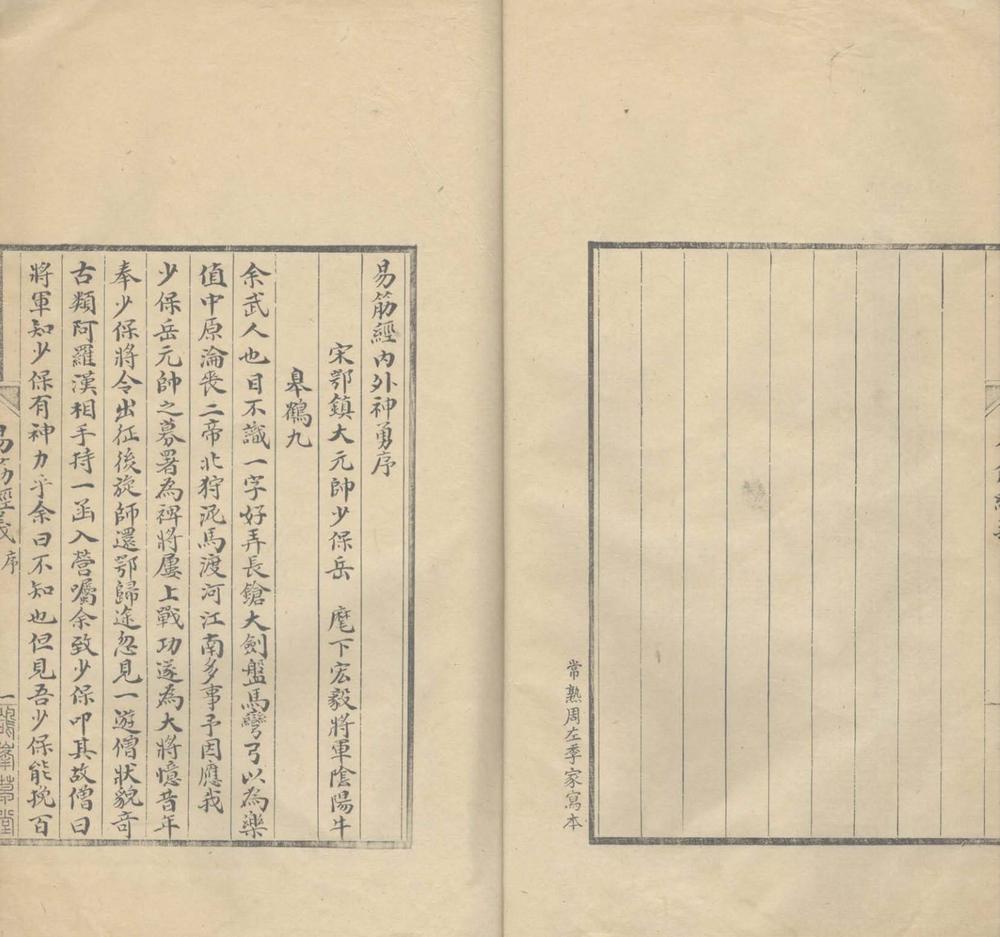 常熟周左季家寫本
易筋經內外神勇序
宋鄂鎮大元帥少保岳　麾下宏毅將軍陰陽牛
皋鶴九
余武人也目不識一字好弄長鎗大劍盤馬彎弓以為樂
值中原淪喪二帝北狩泥馬渡河江南多事予因應我
少保岳元帥之募署為裨將屢上戰功遂為大將憶昔年
奉少保將令出征後旋師還鄂歸途忽見一遊僧狀貌奇
古類阿羅漢相手持一函入營囑余致少保叩其故僧曰
將軍知少保有神力乎余曰不知也但見吾少保能挽百
易筋經義　序
一